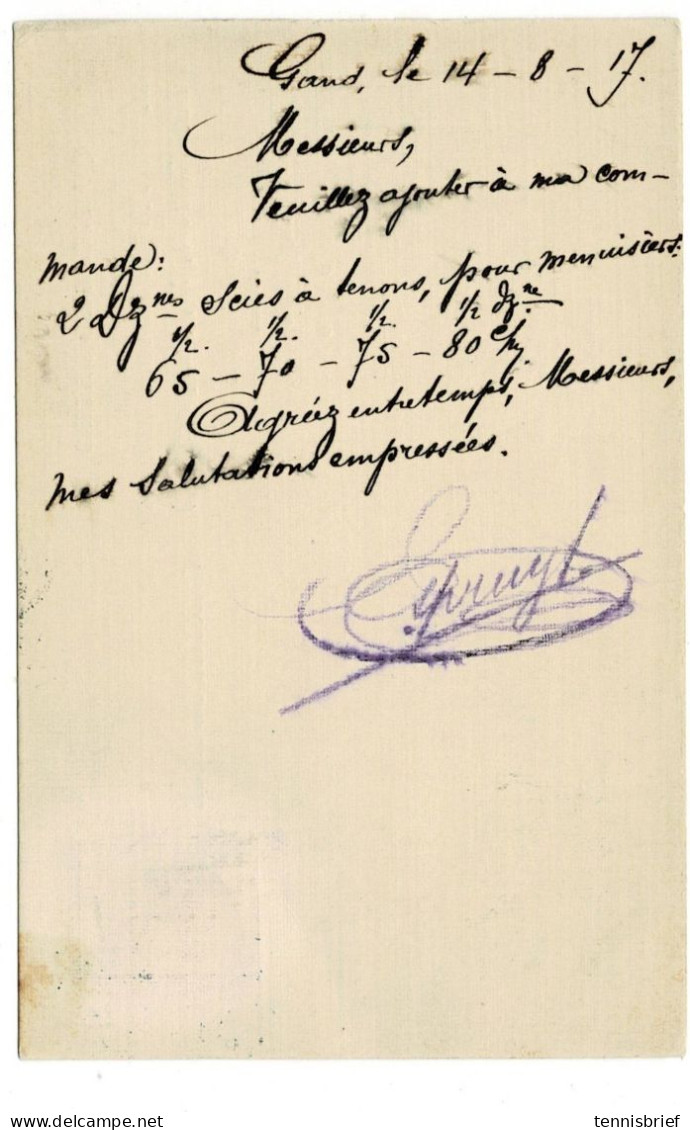 Gand, le 14 - 8 - 17.
Messieurs,
Veuillez ajouter à ma com-
mande:
2 Dz nes Scies à tenons, pour menuisiers:
1/2. 1/2. 1/2. 1/2 dz. ne
65 - 70 - 75 - 80
Agréez entretemps, Messieurs,
mes salutations empressées.
tennisbrief